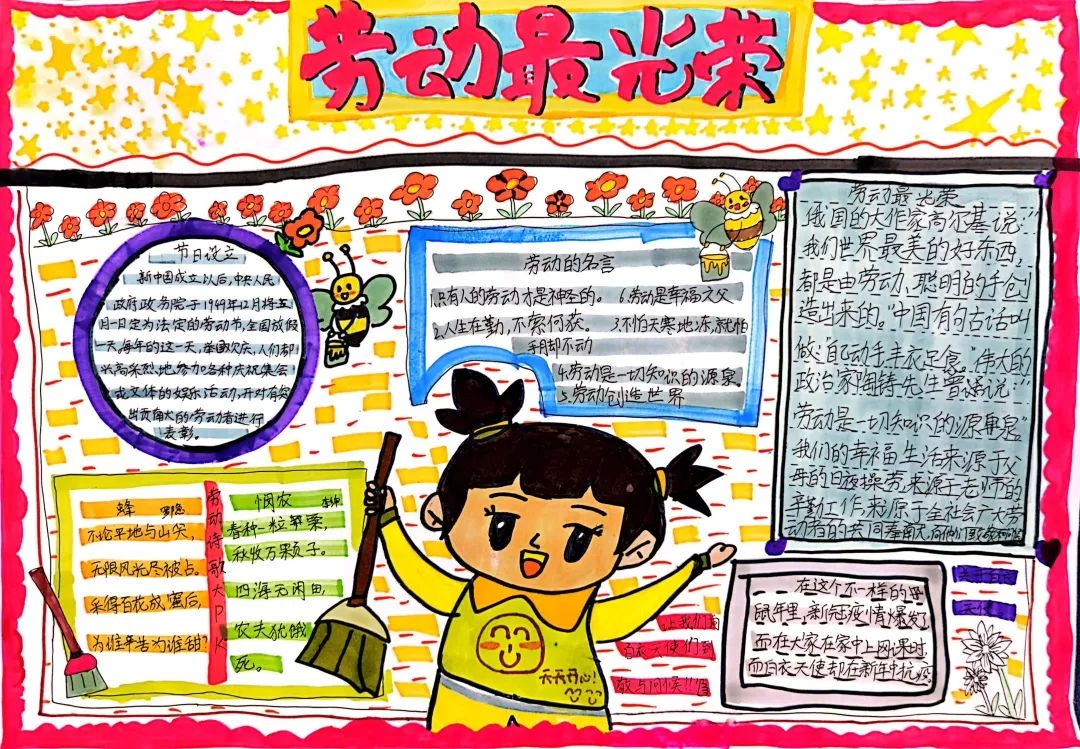 劳动最光荣
节日设立
新中国成立以后,中央人民
政府政务院于1949年12月将五
月一日定为法定的劳动节,全国放假
一天。每年的这一天,举国欢庆,人们都
兴高采烈地参加各种庆祝集会
或文体的娱乐活动,并对有突
出贡献的劳动者进行
表彰。
劳动的名言
1.只有人的劳动才是神圣的。 6.劳动是幸福之父
2.人生在勤,不索何获。 3.不怕天寒地冻,就怕
手脚不动
4.劳动是一切知识的源泉
5.劳动创造世界
劳动最光荣
俄国的大作家高尔基说:“
我们世界最美的好东西,
都是由劳动、聪明的手创
造出来的。”中国有句古话叫
做:“自己动手丰衣足食。”伟大的
政治家陶铸先生曾说:“
劳动是一切知识的源泉”
我们的幸福生活来源于父
母的日夜操劳,来源于老师的
辛勤工作,来原于全社会广大劳
动者的共同奉献,
劳动诗歌大PK
蜂 罗隐
不论平地与山尖,
无限风光尽被占。
采得百花成蜜后,
为谁辛苦为谁甜?
悯农 李绅
春种一粒粟,
秋收万果颗子。
四海无闲田,
农夫犹饿
死。
天天开心!
让我们向
白衣天使们到
敬与问候!!值
在这个不一样的
鼠年里,新冠疫情爆发了
而在大家在家中上网课时,
而白衣天使却在新年中抗疫
天使